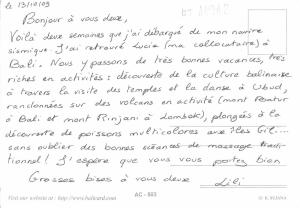 le 13/10/09
Bonjour à vous deux,
Voilà deux semaines que j'ai débarqué de mon navire
sismique. J'ai retrouvé Lucie (ma collocataire) à
Bali. Nous y passons de très bonnes vacances, très
riches en activités : découverte de la culture balinaise
à travers la visite des temples et la danse à Ubud,
randonnées sur des volcans en activité (mont Batur
à Bali et mont Rinjani à Lombok), plongées à la
découverte de poissons multicolores aux îles Gili...
sans oublier des bonnes séances de massage tradi-
tionnel ! J'espère que vous vous portez bien
Grosses bises à vous deux
Lili
Visit our website at http://www.balicard.com
AC - 003